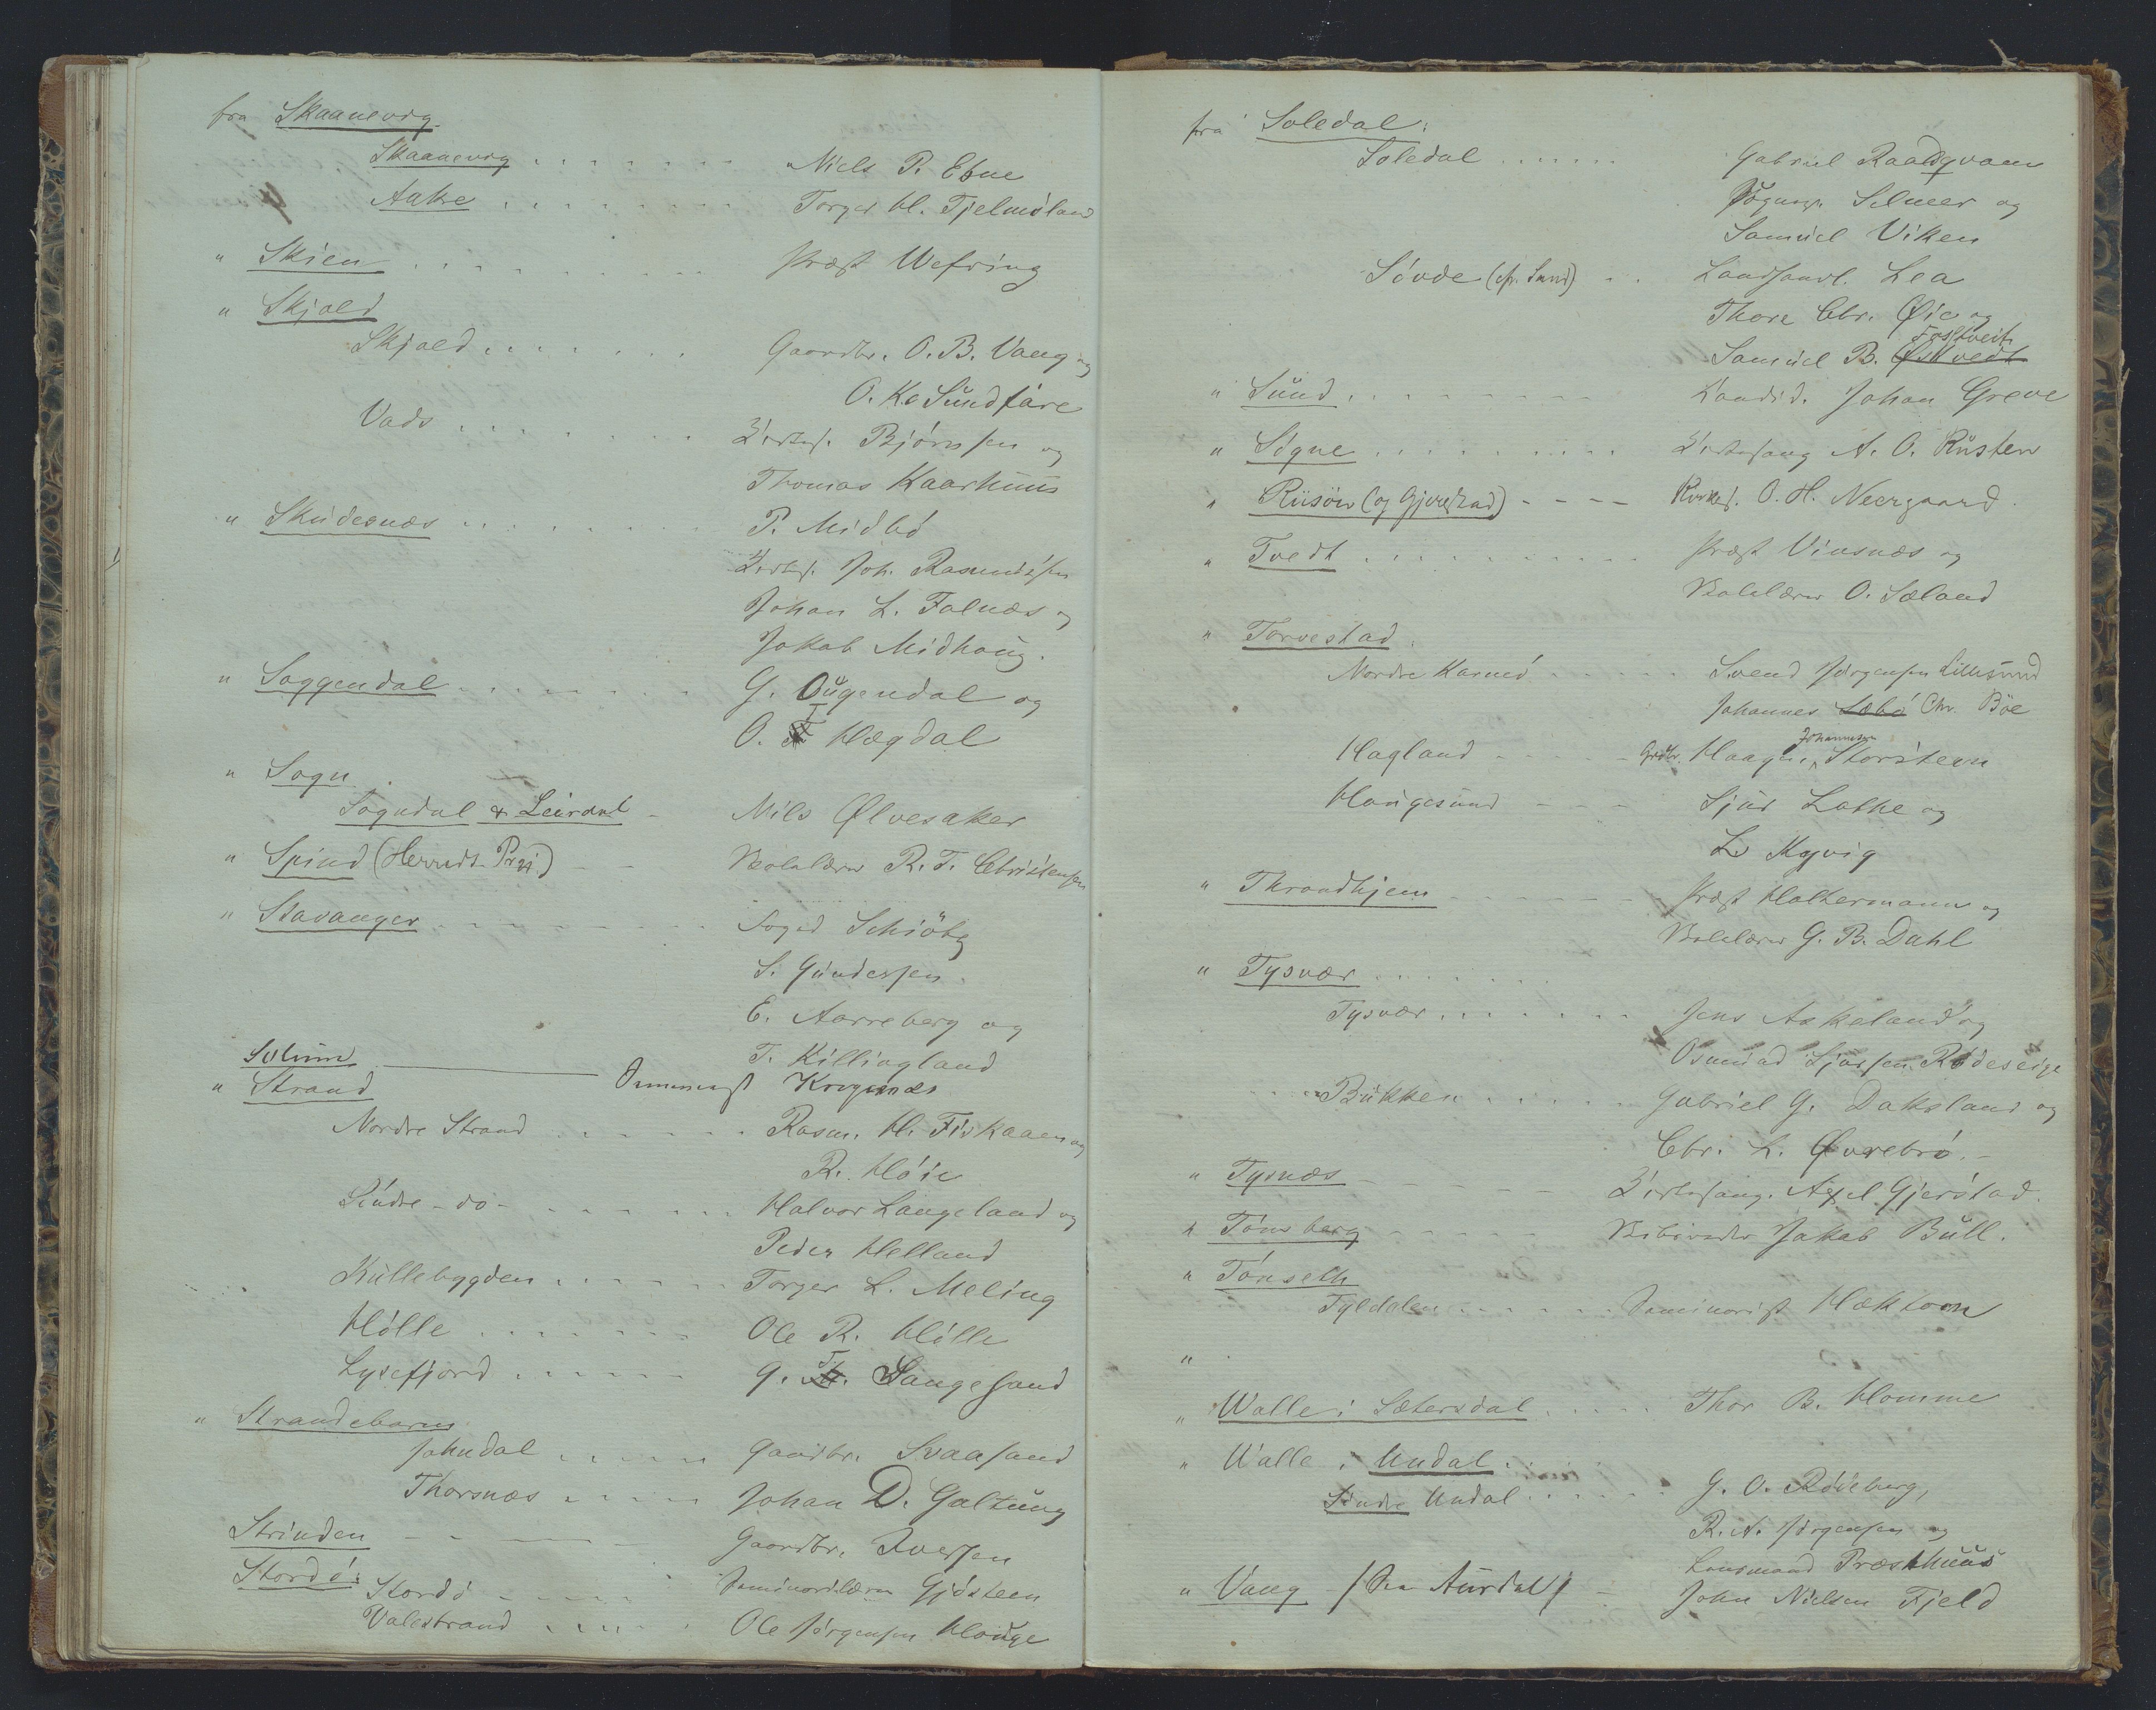 fra Skaanevig.
Skaanevig . . . . . . . . Niels P. Ebne
Aake . . . . . . . . Torger H. Tjelmsland
" Skien . . . . . . . . Præst Wefring
" Skjold
Skjold . . . . . . . Gaardbr. O. B. Vaag og
O. K. Sundføre
Vads . . . . . . . Kirkes. Bjørnsen og
Thomas Kaarhuus
" Skudesnæs . . . . . . . P. Midbö
Kirkes. Joh. Rasmussen
Johan L. Falnæs og
Jakob Midhaug.
" Soggendal . . . . . . . G. Ougendal og
O. T Hægdal
" Sogn.
Sogndal & Leirdal - Nils Ølvesaker
" Spind (Herreds Præj.) - - Skolelærer R. T. Christensen
" Stavanger . . . . . . . Foged Schiötz
S. Gundersen
E. Aarreberg og
T. Killingland
Solum Krogenæs
" Strand
Nordre Strand . . . . . . Rasm. H. Fiskaaen og
R. Höie
Söndre - do - . . . . . . Halvor Langeland og
Peder Helland
Küllebygden . . . . . . Torger L. Meling
Hölle . . . . . . Ole R. Hölle
Lysefjord . . . . . . G. T. Sangesand
" Strandebarm
Johndal . . . . . Gaardbr. Svaasand
Thorsnæs . . . . . Johan D. Galtung
Strinden Gaardbr. Iversen
Stordö:
Stordö - - - - Seminarielærer Gjösteen
Valestrand . . . . . Ole Jörgensen Hauge
fra Soledal:
Soledal . . . . . . Gabriel Raadqvam
Sognepr. Selmer og
Samuel Viken
Sövde (Sp. Sand) . . Landhandl. Lea
Thore Chr. Øie og
Fosstveit
Samuel B. Østtvedt
" Sund . . . . . . . . Kandid. Johan Greve
" Sögne . . . . . . . . Kirkesang A. O. Rusten
" Riisöer (og Gjerestad) - - - - Kirkes. O. H. Neergaard.
" Tvedt . . . . . . . . . Præst Vinsnæs og
Skolelærer O. Sæland
" Torvestad.
Nordre Karmö . . . . . Svend Jörgensen Lillesund
Johannes Sæbö Chr. Böe
Johannesen
Hagland - - - - - Grdbr. Haagn. Storsteen
Haugesund - - - Sjur Lothe og
L. Kyvig
" Throndhjem - - - - - - Præst Haltermann og
Skolelærer G. B. Dahl
" Tysvær . . . . . .
Tysvær . . . . . . Jens Askeland og
Osmund Sjursen Rödeseige
Bukken . . . . . Gabriel G. Daksland og
Chr. L. Øvrebrö.-
" Tysnæs - - - - - Kirkesang. Axel Gjerstad.
" Tönsberg - - - - - Skibsreder Jakob Bull.
" Tönseth
Tyldalen . . . . . Seminarist Hæktoen
"
" Walle i Sætersdal . . . . Thor B. Homme
" Walle i Undal . . . .
Söndre Undal . . . . . G. O. Röiseberg,
R. A. Jörgensen og
Lensmand Præsthuus
" Vang (see Aurdal) - John Nielsen Fjeld